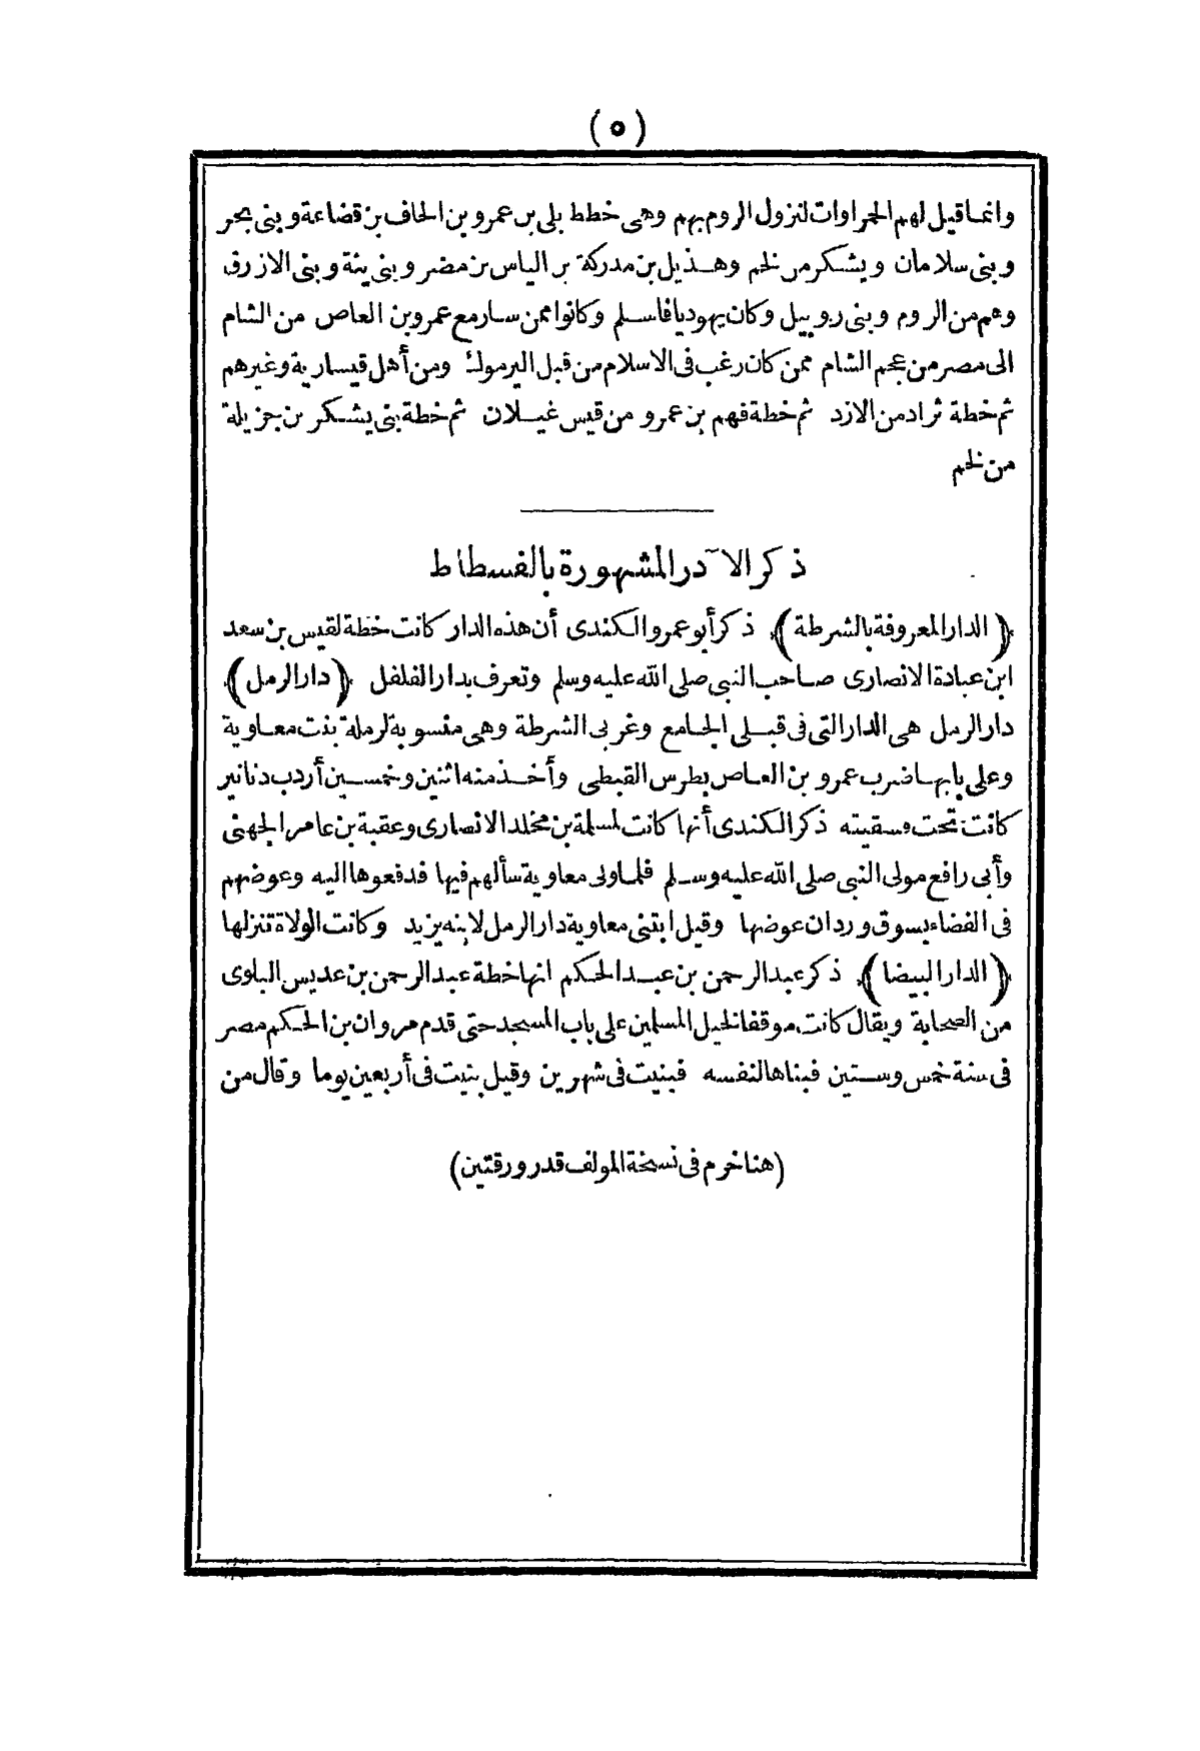 (٥)
وانما قيل لهم الحمراوات لنزول الروم بهم وهى خطط بلى بن عمرو بن الحاف بن قضاعة وبنى بحر
وبنى سلامان ويشكر من لخم وهذيل بن مدركة بن الياس بن مضر وبنى ينة وبنى الازرق
وهم من الروم وبنى روبيل وكان يهوديا فاسلم وكانوا ممن سار مع عمرو بن العاص من الشام
الى مصر من عجم الشام ممن كان رغب فى الاسلام من قبل اليرموك ومن أهل قيسارية وغيرهم
ثم خطة ثراد من الازد ثم خطة فهم بن عمرو من قيس غيلان ثم خطة بنى يشكر بن جزيلة
من لخم
ذكر الآدر المشهورة بالفسطاط
(الدار المعروفة بالشرطة) ذكر أبو عمرو الكندى أن هذه الدار كانت خطة لقيس بن سعد
ابن عبادة الانصارى صاحب النبى صلى الله عليه وسلم وتعرف بدار الفلفل (دار الرمل)
دار الرمل هى الدار التى فى قبلى الجامع وغربى الشرطة وهى منسوبة لرملة بنت معاوية
وعلى بابها ضرب عمرو بن العاص بطرس القبطى وأخذ منه اثنين وخمسين أردب دنانير
كانت تحت وسقيته ذكر الكندى أنها كانت لمسلمة بن مخلد الانصارى وعقبة بن عامر الجهنى
وأبى رافع مولى النبى صلى الله عليه وسلم فلما ولى معاوية سألهم فيها فدفعوها اليه وعوضهم
فى الفضاء بسوق وردان عوضها وقيل ابتنى معاوية دار الرمل لابنه يزيد وكانت الولاة تنزلها
(الدار البيضا) ذكر عبد الرحمن بن عبد الحكم انها خطة عبد الرحمن بن عديس البلوى
من الصحابة ويقال كانت موقفا لخيل المسلمين على باب المسجد حتى قدم مروان بن الحكم مصر
فى سنة خمس وستين فبناها لنفسه فبنيت فى شهرين وقيل بنيت فى أربعين يوما وقال من
(هنا خرم فى نسخة المولف قدر ورقتين)